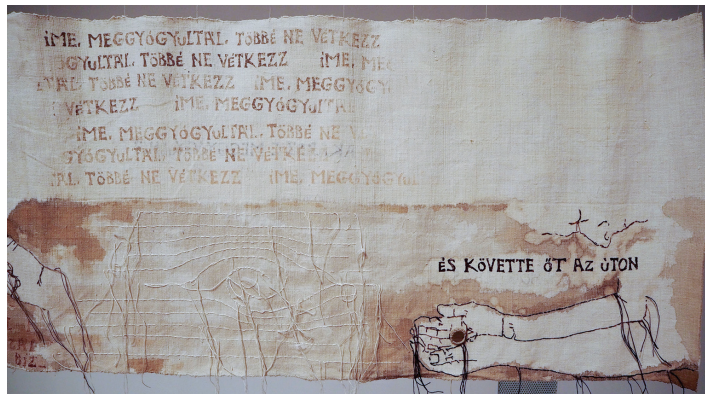 íME, MEGGYóGYuLTÁL, TöBBÉ NE VÉTKEZZ
GYuLTÁL, TöBBÉ NE VÉTKEZZ íME, MEG
LTÁL, TöBBÉ NE VÉTKEZZ íME, MEGGYóGY
VÉTKEZZ íME, MEGGYóGYuLTÁL
íME, MEGGYóGYuLTÁL, TöBBÉ NE V
GYóGYuLTÁL, TöBBÉ NE VÉTKEZZ
TÁL, TöBBÉ NE VÉTKEZZ íME, MEGGYóGYuL
ÉS KöVETTE őT AZ úTON